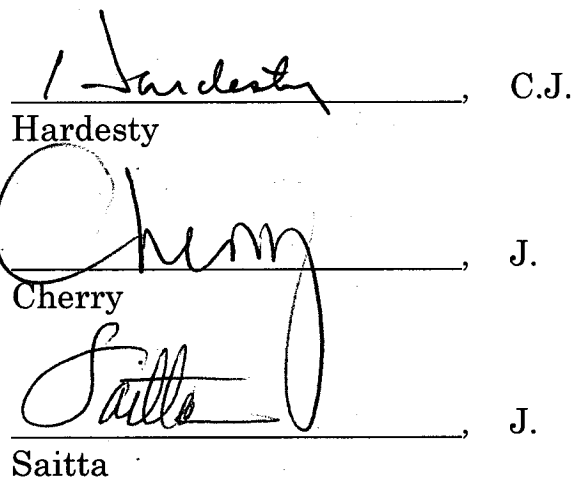 Hardesty, C.J.
Hardesty
Cherry, J.
Cherry
Saitta, J.
Saitta